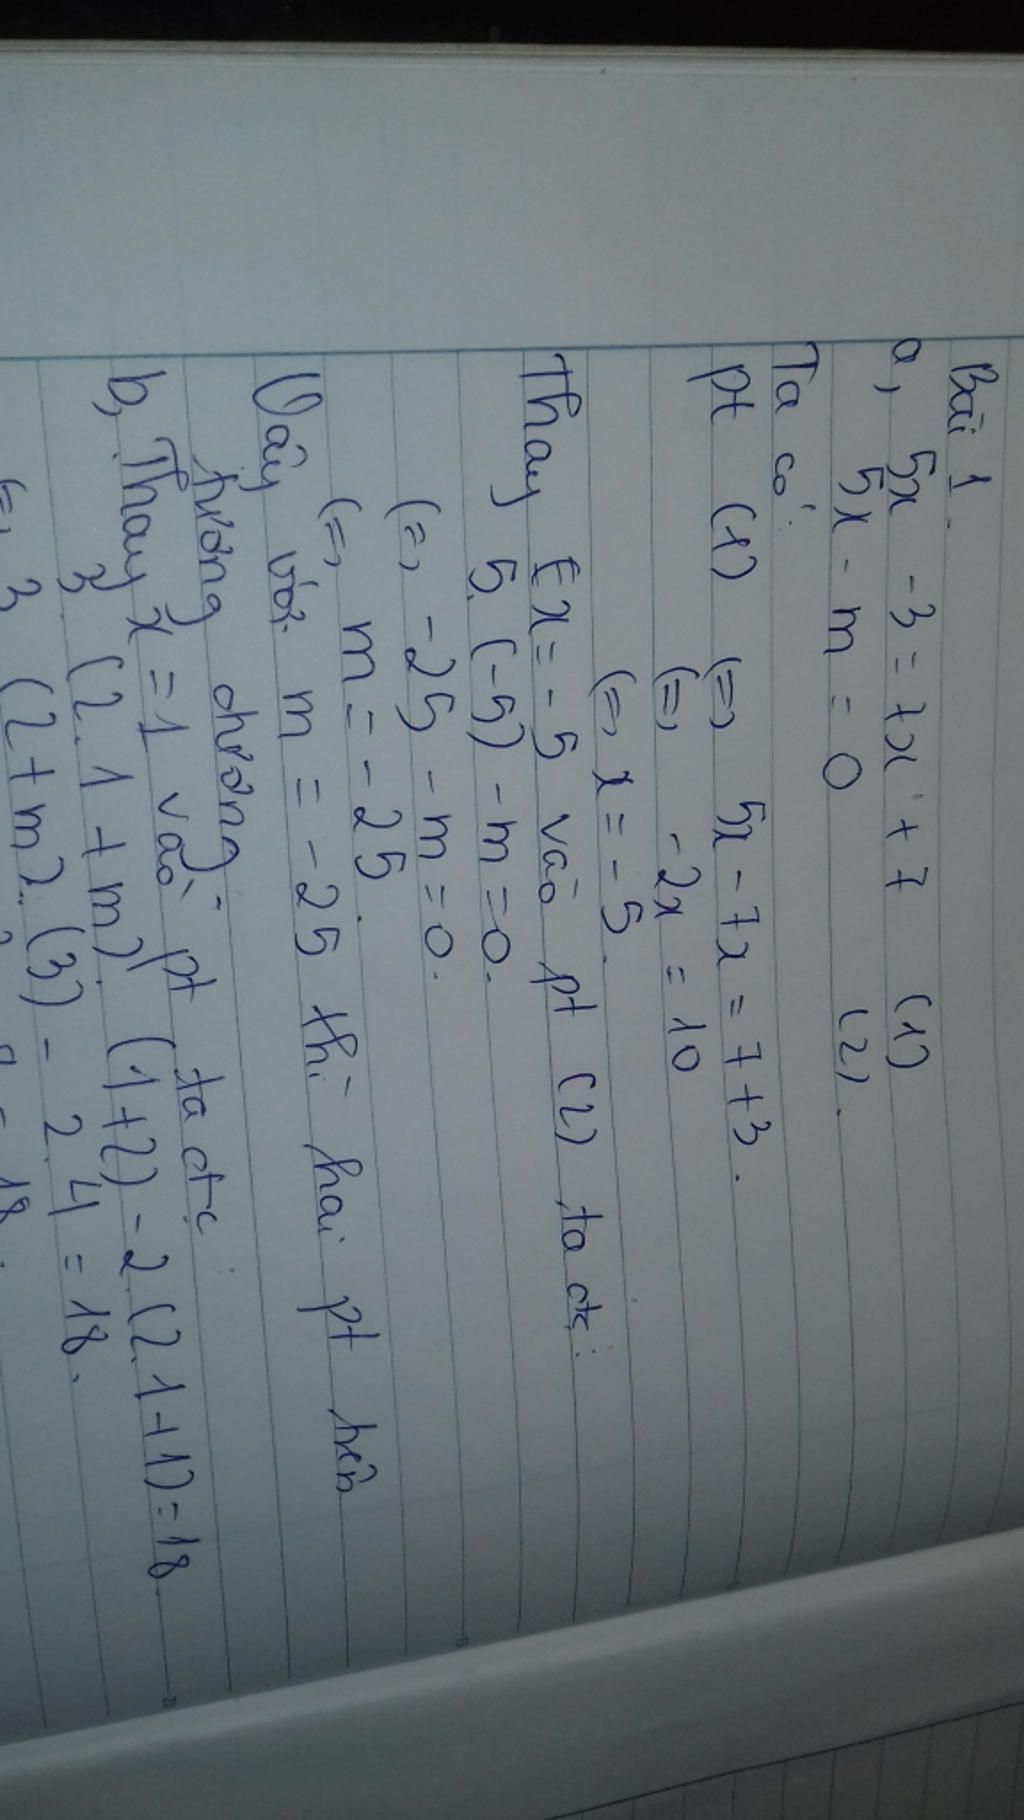 Bài 1.
a, 5x - 3 = 7x + 7 (1)
5x - m = 0 (2).
Ta có:
pt (1) (=) 5x - 7x = 7 + 3.
(=) -2x = 10
(=) x = -5.
Thay x = -5 vào pt (2) ta đc:
5.(-5) - m = 0.
(=) -25 - m = 0.
(=) m = -25.
Vậy với m = -25 thì hai pt trên
tương đương.
b, Thay x = 1 vào pt ta đc:
3 (2.1 + m). (1+2) - 2(2.1+1) = 18
3 (2+m). (3) - 2.4 = 18.